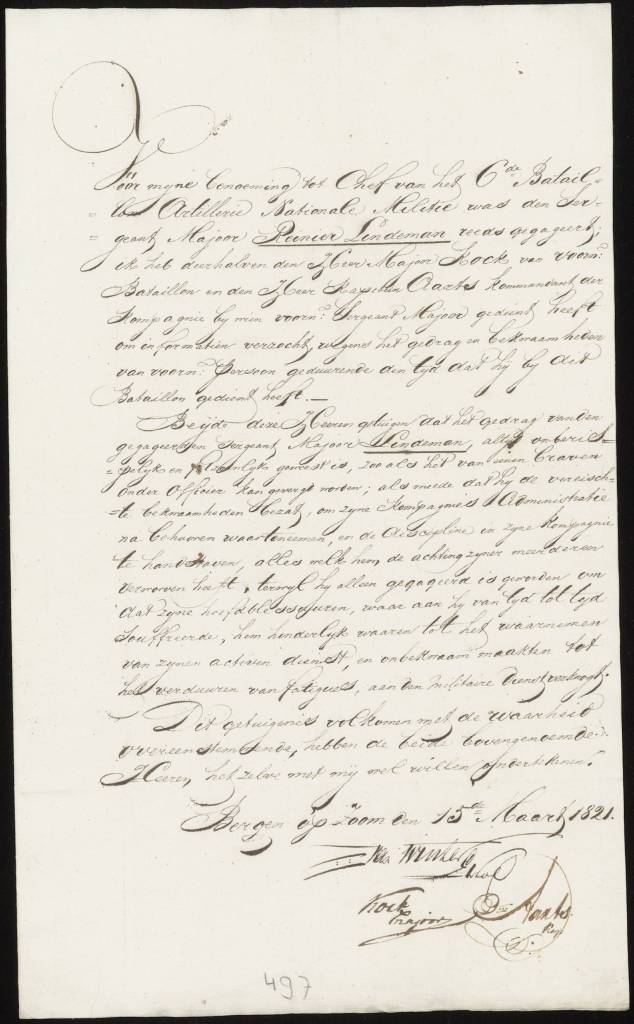 Vóór myne benoeming tot Chef van het 6de Batail-
= lon Artillerie Nationale Militie was den Ser-
= geant Majoor Reinier Lindeman reeds gegageert;
ik heb derhalven den Heer Major Kock van voorn:
Bataillon en den Heer Kapitein Aarts kommandant der
kompagnie by wien voorn: Sergeant Majoor gedient heeft
om informatien verzocht, wegens het gedrag en bekwaamheden
van voorn: Persoon geduurende den tyd dat hy by dit
Bataillon gedient heeft. —
Beijde deze Heeren getuigen dat het gedrag van den
gegageerden Sergeant Majoor Lindeman, altyd onberis-
= pelyk en fatzoenlyk geweest is, zoo als het van eenen braven
onder Officier kan gevergd worden; als meede dat hy de vereisch-
= te bekwaamheden bezat, om zyne Kompagnies Administratie
na behooren waarteneemen, en de discipline in zyne kompagnie
te handhaven, alles welk hem de achting zyner meerderen
verworven heeft, terwyl hy alleen gegageerd is geworden om
dat zyne hoofdblessuuren, waar aan hy van tyd tot tyd
souffrierde, hem hinderlyk waaren tot het waarnemen
van zynen activen dienst, en onbekwaam maakten tot
het verduuren van fatigues, aan den militaire dienst verknogt.
Dit getuigenis volkomen met de waarheid
overeenstemmende, hebben de beide bovengenoemde
Heeren, het zelve met mij wel willen ondertekenen.
Bergen op Zoom den 15de Maart 1821.
Kock
Majoor
Aarts
Kap.
497